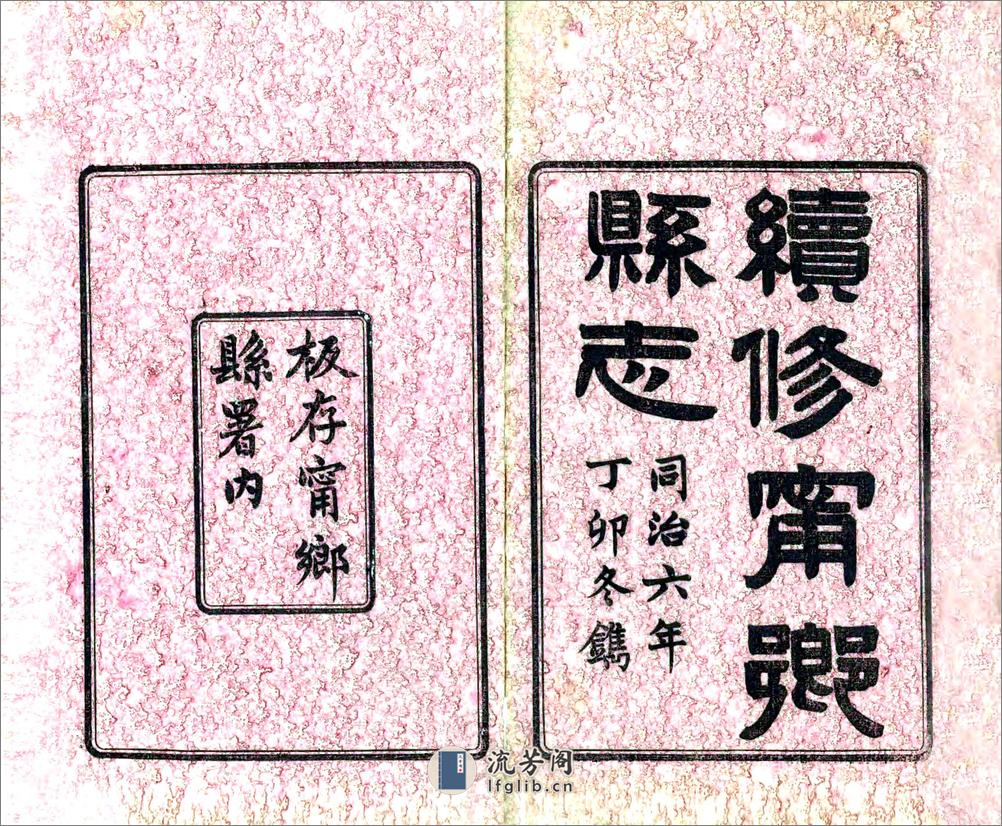 續修甯鄉
縣志
同治六年
丁卯冬鐫
板存甯鄉
縣署內
流芳阁
lfglib.cn